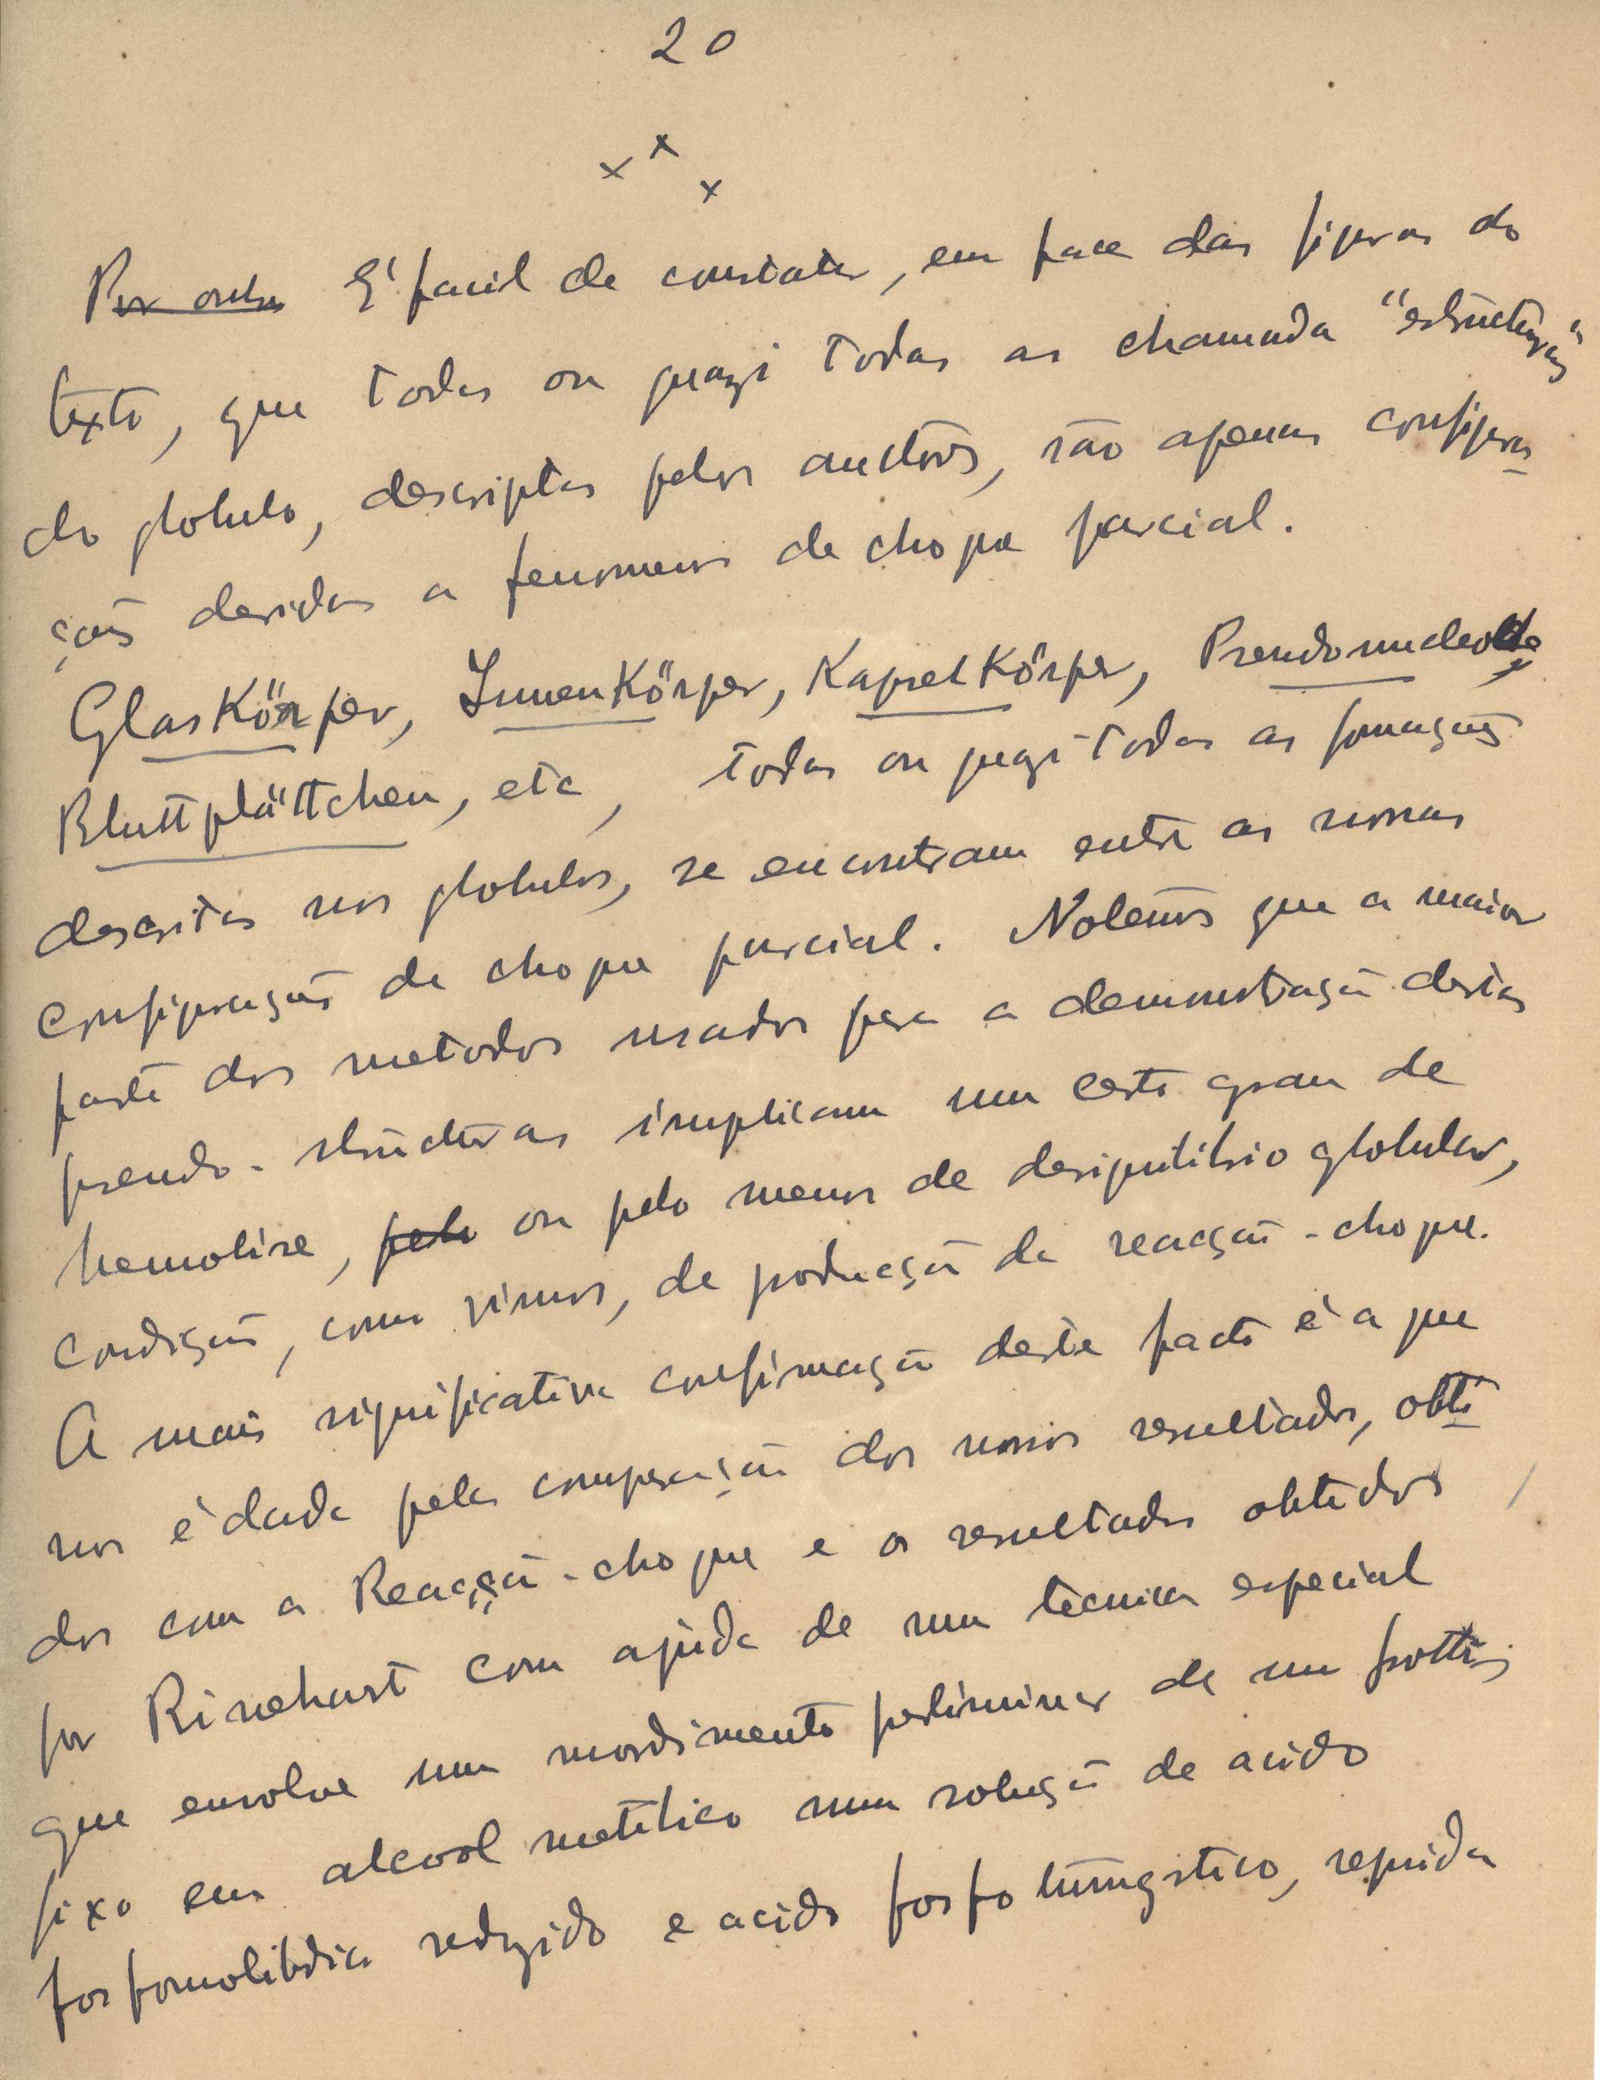 20
x x x
Por outro E' facil de constatar, em face das figuras do
texto, que todas ou quazi todas as chamada "estructuras"
do globulo, descriptas pelos auctores, são apenas configura-
ções devidas a fenomenos de choque parcial.
Glaskörper, Innenkörper, Kapselkörper, Pseudonucleo
Bluttplättchen, etc, todas ou quazi todas as formações
descritas nos globulos, se encontram entre as nossas
configurações de choque parcial. Notemos que a maior
parte dos metodos usados para a demonstração destas
pseudo-structuras implicam um certo grau de
hemolise, pelo ou pelo menos de desiquilibrio globular,
condição, como vimos, de producção da reacção-choque.
A mais significativa confirmação deste facto é a que
nos é dada pela comparação dos nossos resultados, obti-
dos com a Reacção-choque e os resultados obtidos
por Rinehart com ajuda de uma tecnica especial
que envolve um mordimento preliminar de um frottis,
fixo em alcool metilico numa solução de acido
fosfomolibdico reduzido e acido fosfotungstico, seguida